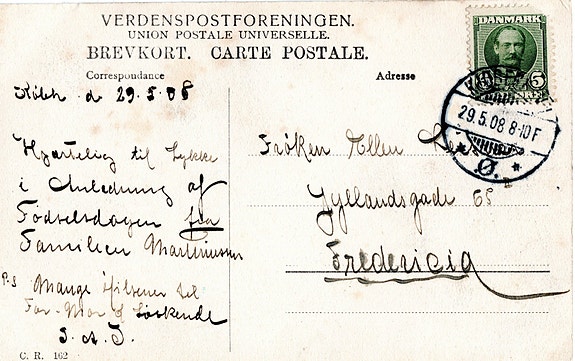 VERDENSPOSTFORENINGEN.
UNION POSTALE UNIVERSELLE.
BREVKORT. CARTE POSTALE.
Correspondance
Adresse
DANMARK
5
29.5.08 8-10F
Ø.
Kbhh d 29.5.08
Hjærtelig til Lykke
i Anledning af
Fødselsdagen fra
Familien Martinussen
P.S Mange Hilsener til
Far-Mor & Søskende
S.A.J.
Frøken Ellen
Jyllandsgade 65
Fredericia
C. R. 162